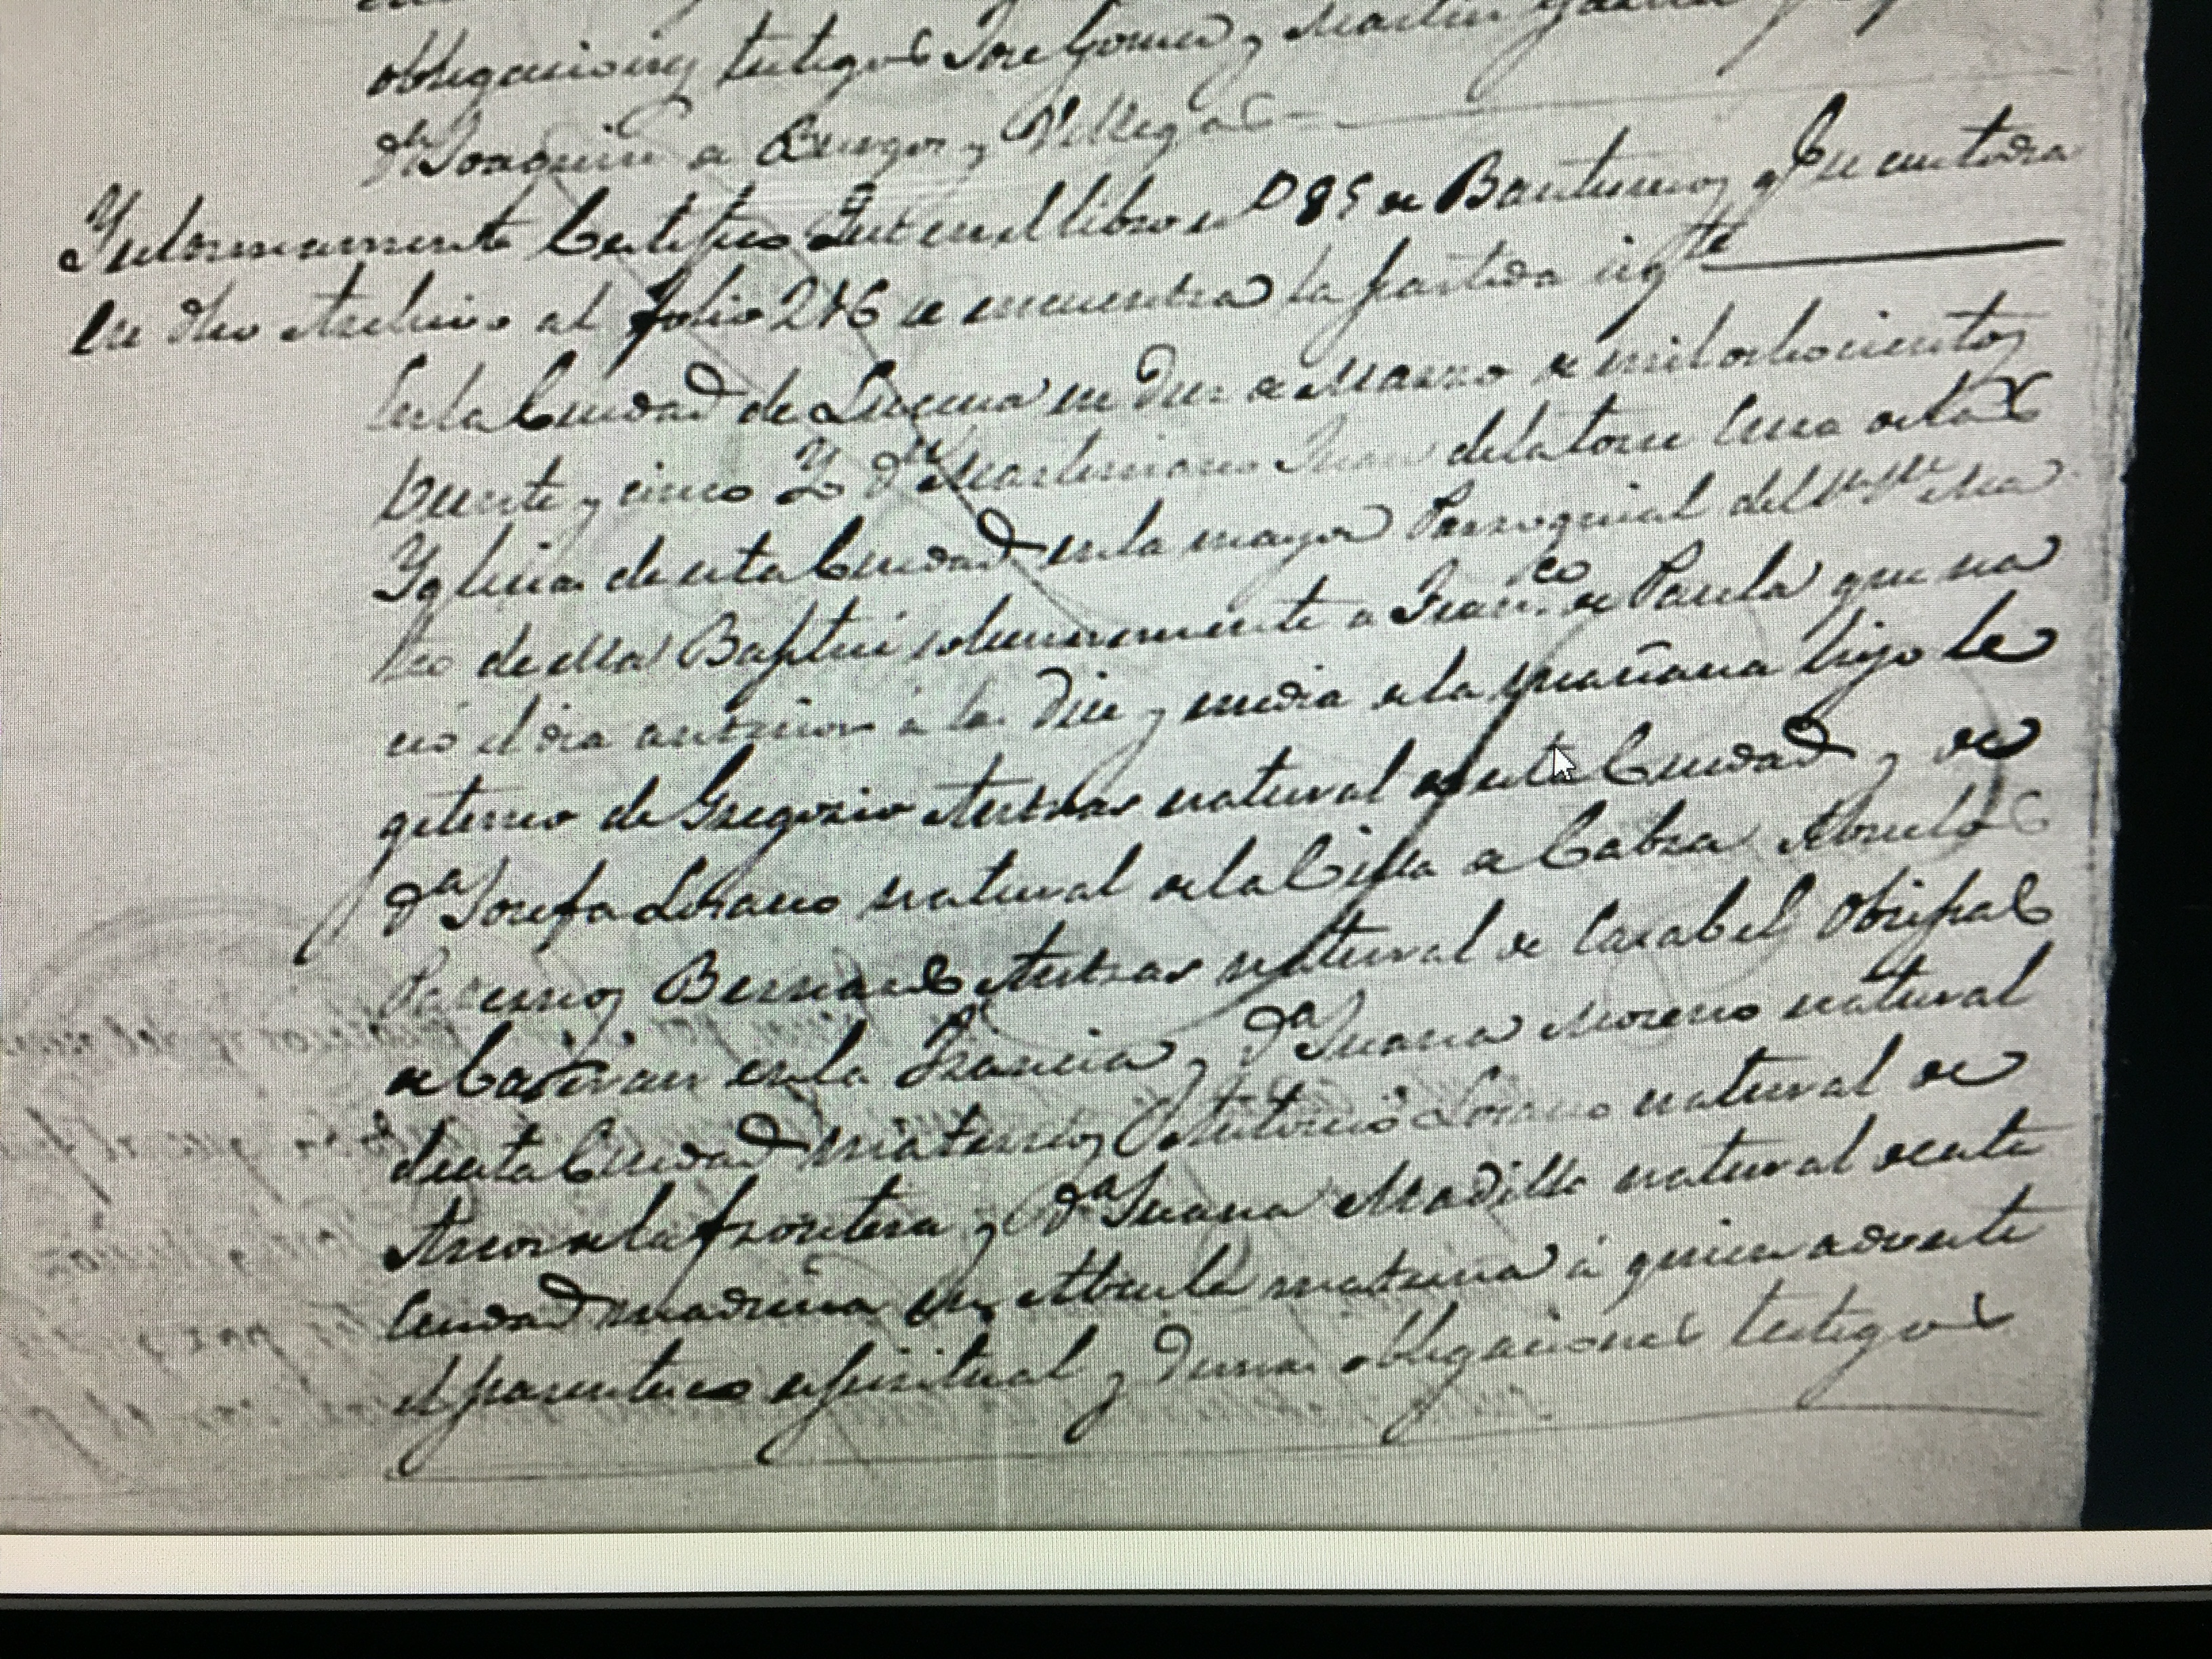 obligaciones testigos Jose Gomez y Martin
dn Joaquin de Burgos y Villegas
Igualmente Certifico Que en el libro nº 85 de Bautismos q. Se custodia
en dho Archivo al folio 246 se encuentra la partida sigte
En la Ciudad de Lucena en diez de Marzo de mil ochocientos
Veinte y cinco Yo dn Juan de la torre Cura de las
Yglesias de esta Ciudad en la mayor Parroquial del Sn Sn Ma
teo de ella Baptisé solemnemente a Franco de Paula que na
ció el dia anterior à las Diez y media de la mañana hijo le
gitimo de Gregorio natural de esta Ciudad y de
da Josefa Lozano natural de la Villa de Cabra Abuelos
Paternos Bernardo natural de Obispado
de en la Francia y da Juana Moreno natural
de esta Ciudad maternos Antonio Lozano natural de
Arcos de la frontera y da Juana Madillo natural de esta
Ciudad madrina su Abuela materna à quien adverti
el parentesco espiritual y demas obligaciones testigos